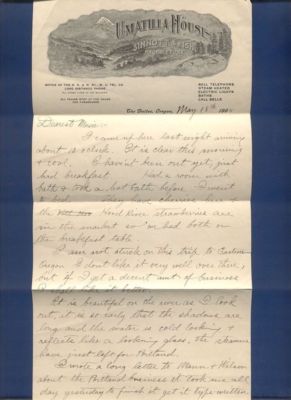 UMATILLA HOUSE
SINNOTT & FISH
PROPRIETORS
BELL TELEPHONE
STEAM HEATED
ELECTRIC LIGHTS
BATHS
CALL BELLS
The Dalles, Oregon, May 18th 190
Dearest Mina:-
I came up here last night arriving
about 10 o'clock. It is clear this morning
& cool. I haven't been out yet, just
had breakfast. Had a room with
bath & took a hot bath before I went
to bed. They have cherries here &
the Hood River strawberries are
in the market so we had both on
the breakfast table
I am not stuck on this trip to Eastern
Oregon. I don't like it very well over there,
but if I get a decent amt of business
I shall like it better.
It is beautiful on the river as I look
out, it is so early that the shadows are
long and the water is cold looking &
reflects like a looking glass, the steamer
have just left for Portland.
I wrote a long letter to Mann & Wilson
about the Portland business it took me all
day yesterday to finish it, get it type written